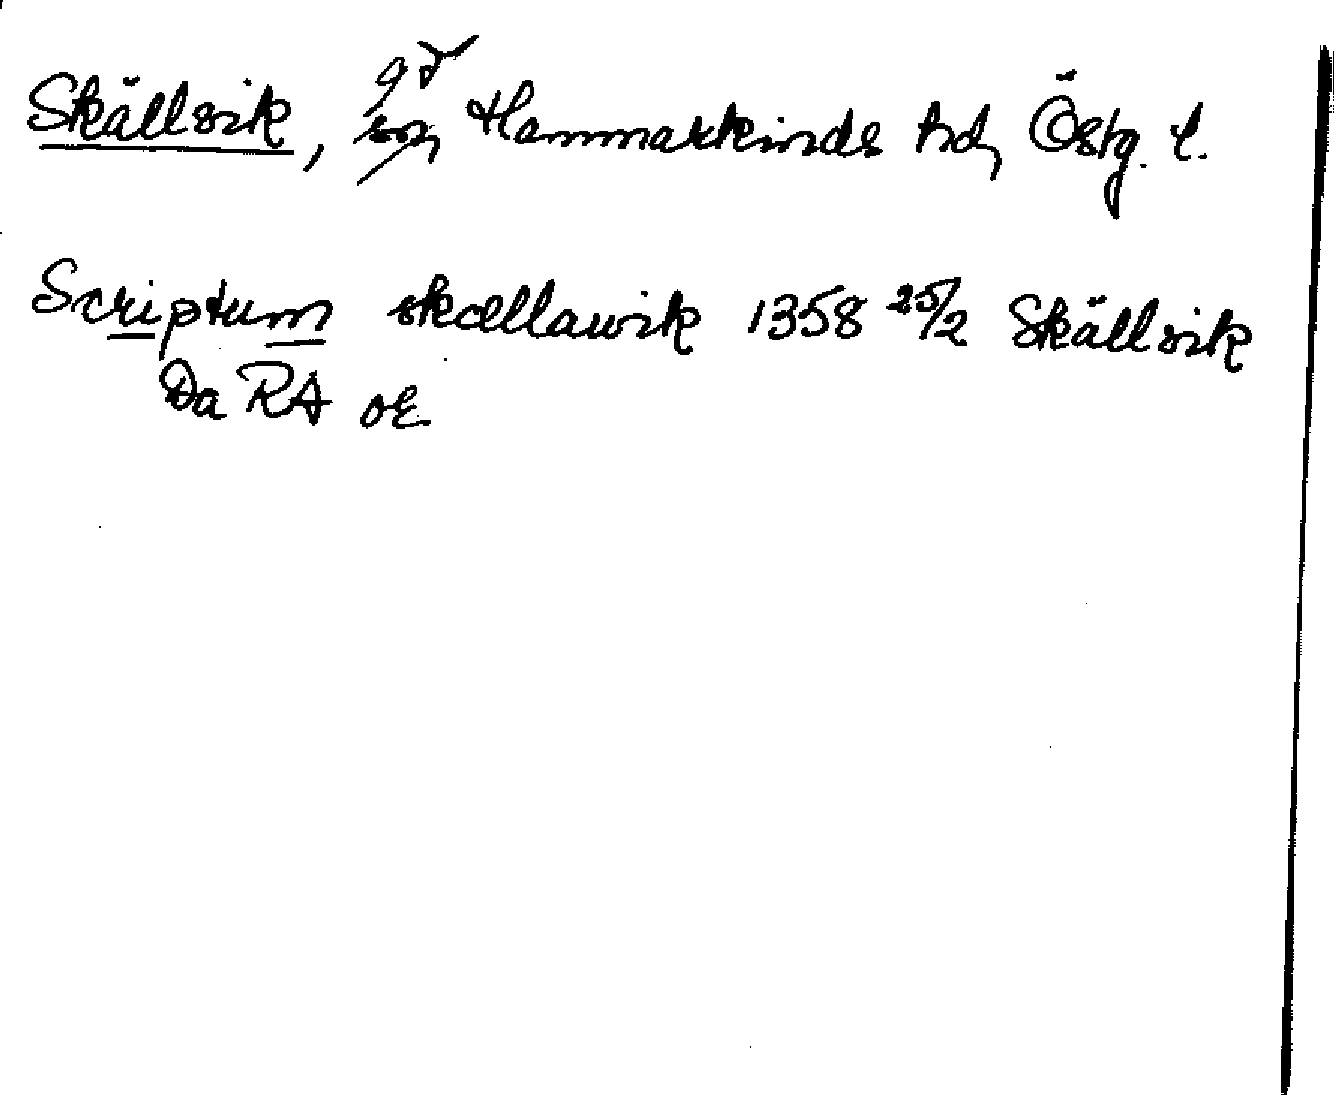 Skällvik, gd Hammarkinds hd, Östg. l.
Scriptum skællawik 1358 25/2 Skällvik
Da RA oe